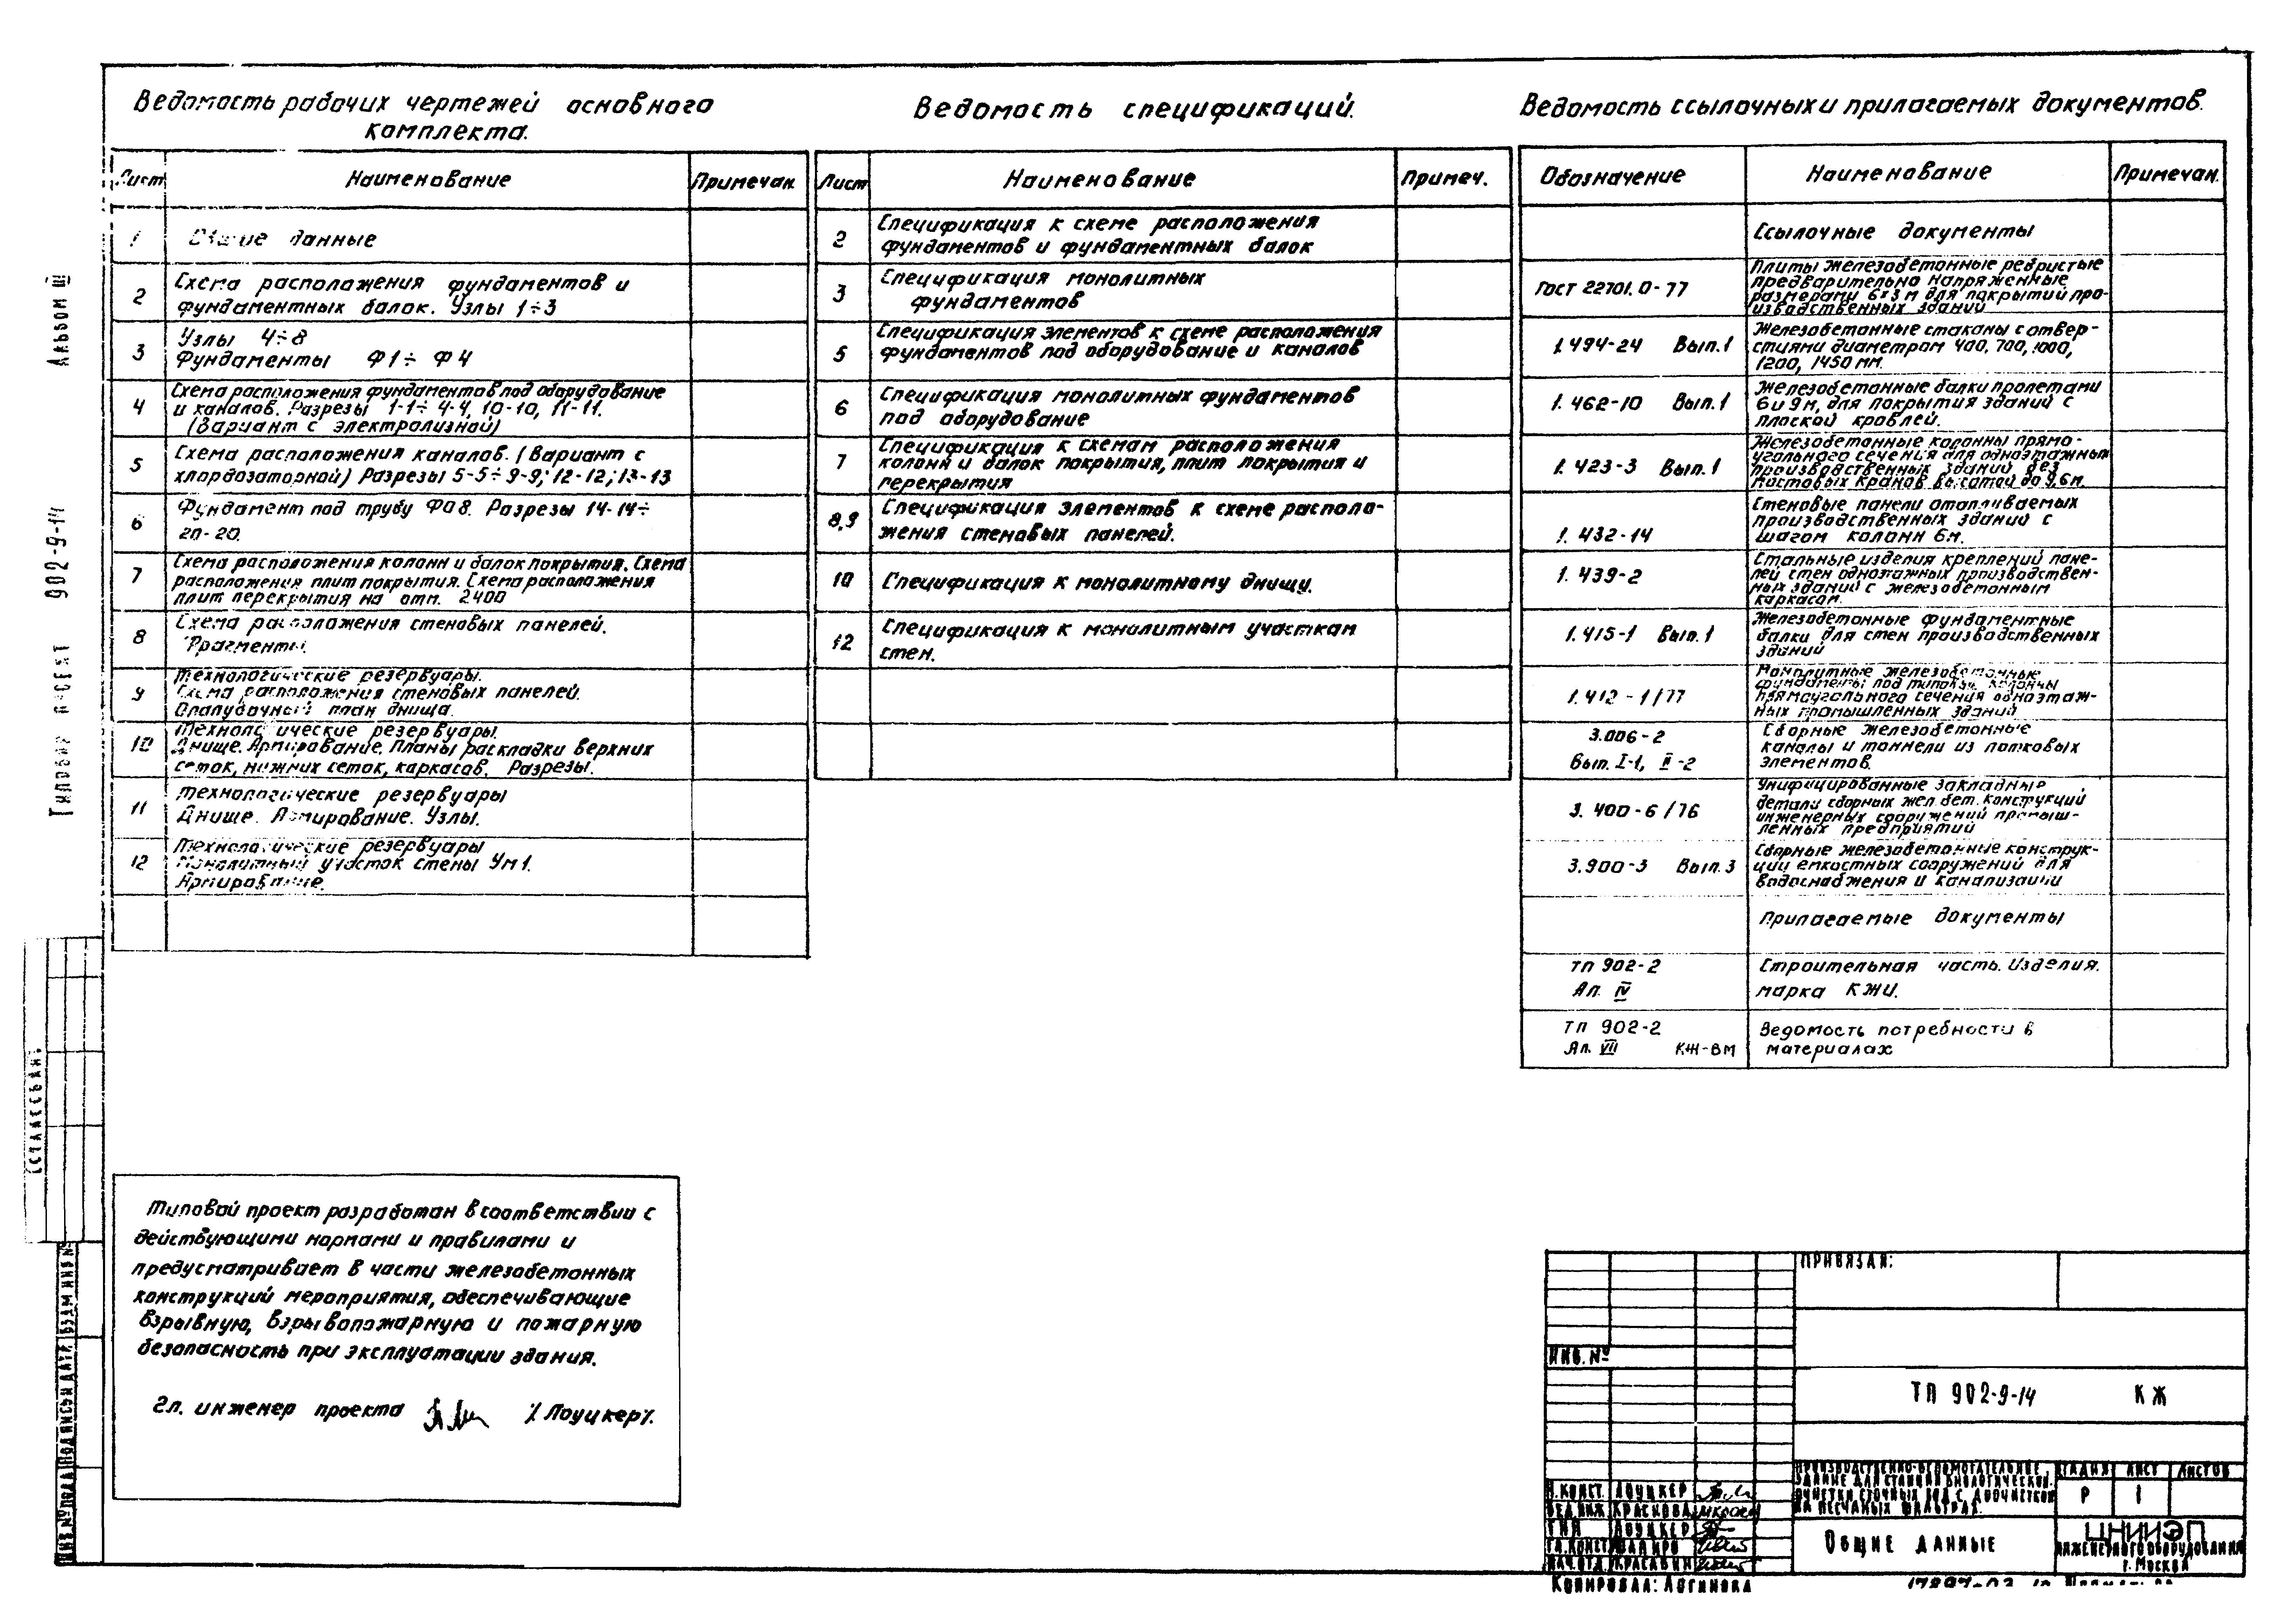 Альбом III
902-9-14
Ведомость рабочих чертежей основного
комплекта.
Лист Наименование Примечан.
1 Общие данные
2 Схема расположения фундаментов и
фундаментных балок. Узлы 1÷3
3 Узлы 4÷8
Фундаменты Ф1÷ Ф4
4 Схема расположения фундаментов под оборудование
и каналов. Разрезы 1-1÷4-4, 10-10, 11-11.
(Вариант с электролизной)
5 Схема расположения каналов. (Вариант с
хлордозаторной) Разрезы 5-5÷9-9; 12-12; 13-13
6 Фундамент под трубу ФО8. Разрезы 14-14÷
20-20.
7 Схема расположения колонн и балок покрытия. Схема
расположения плит покрытия. Схема расположения
плит перекрытия на отм. 2400
8 Схема расположения стеновых панелей.
Фрагменты.
9 Технологические резервуары.
Схема расположения стеновых панелей.
Опалубочный план днища.
10 Технологические резервуары.
Днище. Армирование. Планы раскладки верхних
сеток, нижних сеток, каркасов. Разрезы.
11 Технологические резервуары
Днище. Армирование. Узлы.
12 Технологические резервуары
Монолитный участок стены Ум1.
Армирование.
Ведомость спецификаций.
Лист Наименование Примеч.
2 Спецификация к схеме расположения
фундаментов и фундаментных балок
3 Спецификация монолитных
фундаментов
5 Спецификация элементов к схеме расположения
фундаментов под оборудование и каналов
6 Спецификация монолитных фундаментов
под оборудование
7 Спецификация к схемам расположения
колонн и балок покрытия, плит покрытия и
перекрытия
8,9 Спецификация элементов к схеме располо-
жения стеновых панелей.
10 Спецификация к монолитному днищу.
12 Спецификация к монолитным участкам
стен.
Ведомость ссылочных и прилагаемых документов.
Обозначение Наименование Примечан.
Ссылочные документы
Гост 22701.0-77 Плиты железобетонные ребристые
предварительно напряженные
размерами 6×3м для покрытий про-
изводственных зданий
1.494-24 Вып.1 Железобетонные стаканы с отвер-
стиями диаметром 400, 700, 1000,
1200, 1450 мм.
1.462-10 Вып.1 Железобетонные балки пролетами
6 и 9м, для покрытия зданий с
плоской кровлей.
1.423-3 Вып.1 Железобетонные колонны прямо-
угольного сечения для одноэтажных
производственных зданий без
мостовых кранов высотой до 9,6м.
1.432-14 Стеновые панели отапливаемых
производственных зданий с
шагом колонн 6м.
1.439-2 Стальные изделия креплений пане-
лей стен одноэтажных производствен-
ных зданий с железобетонным
каркасом.
1.415-1 Вып.1 Железобетонные фундаментные
балки для стен производственных
зданий
1.412-1/77 Монолитные железобетонные
фундаменты под типовые колонны
прямоугольного сечения одноэтаж-
ных промышленных зданий
3.006-2 Вып. I-1, II-2 Сборные железобетонные
каналы и тоннели из лотковых
элементов.
3.400-6/76 Унифицированные закладные
детали сборных жел.бет. конструкций
инженерных сооружений промыш-
ленных предприятий
3.900-3 Вып.3 Сборные железобетонные конструк-
ции емкостных сооружений для
водоснабжения и канализации
Прилагаемые документы
ТП 902-2 Ал. IV Строительная часть. Изделия.
марка КЖИ.
ТП 902-2 Ал. VII КЖ-ВМ Ведомость потребности в
материалах
Типовой проект разработан в соответствии с
действующими нормами и правилами и
предусматривает в части железобетонных
конструкций мероприятия, обеспечивающие
взрывную, взрывопожарную и пожарную
безопасность при эксплуатации здания.
Гл. инженер проекта /Лоуцкер/.
ПРИВЯЗАН:
ИНВ. №
ТП 902-9-14 КЖ
ПРОИЗВОДСТВЕННО-ВСПОМОГАТЕЛЬНОЕ
ЗДАНИЕ ДЛЯ СТАНЦИИ БИОЛОГИЧЕСКОЙ
ОЧИСТКИ СТОЧНЫХ ВОД С ДООЧИСТКОЙ
НА ПЕСЧАНЫХ ФИЛЬТРАХ.
СТАДИЯ ЛИСТ ЛИСТОВ
Р 1
Н.КОНСТ. ЛОУЦКЕР
ВЕД.ИНЖ. КРАСНОВА
ГИП ЛОУЦКЕР
ГЛ.КОНСТ. ШАПИРО
НАЧ.ОТД. КРАСАВИН
ОБЩИЕ ДАННЫЕ
ЦНИИЭП
ИНЖЕНЕРНОГО ОБОРУДОВАНИЯ
г. МОСКВА
КОПИРОВАЛ: ЛОГИНОВА
17897-03